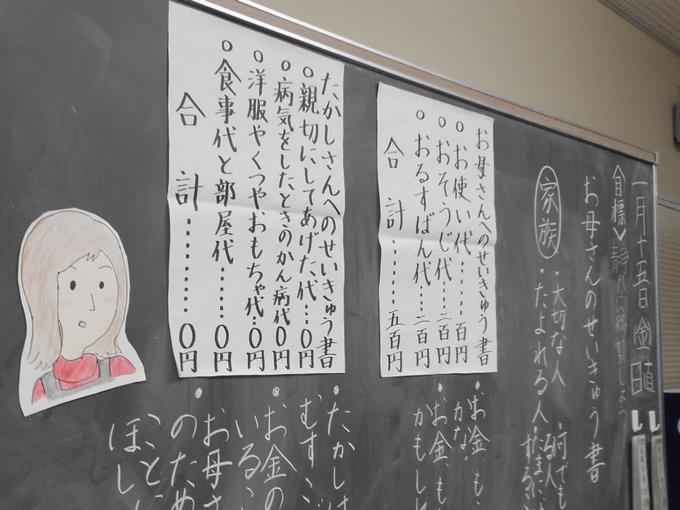 一月十五日(金)
お母さんのせいきゅう書
家族
・大切な人
・たよれる人
お母さんへのせいきゅう書
○お使い代……一百円
○おそうじ代…二百円
○おるすばん代…二百円
合計………五百円
・お金、も
かな。
・お金、も
かもし
たかしさんへのせいきゅう書
○親切にしてあげた代…0円
○病気をしたときのかん病代0円
○洋服やくつやおもちゃ代…0円
○食事代と部屋代……0円
合計…………0円
・たかしは
むすこ
・お金の
いるこ
お母さ
のため
ことに
ほし